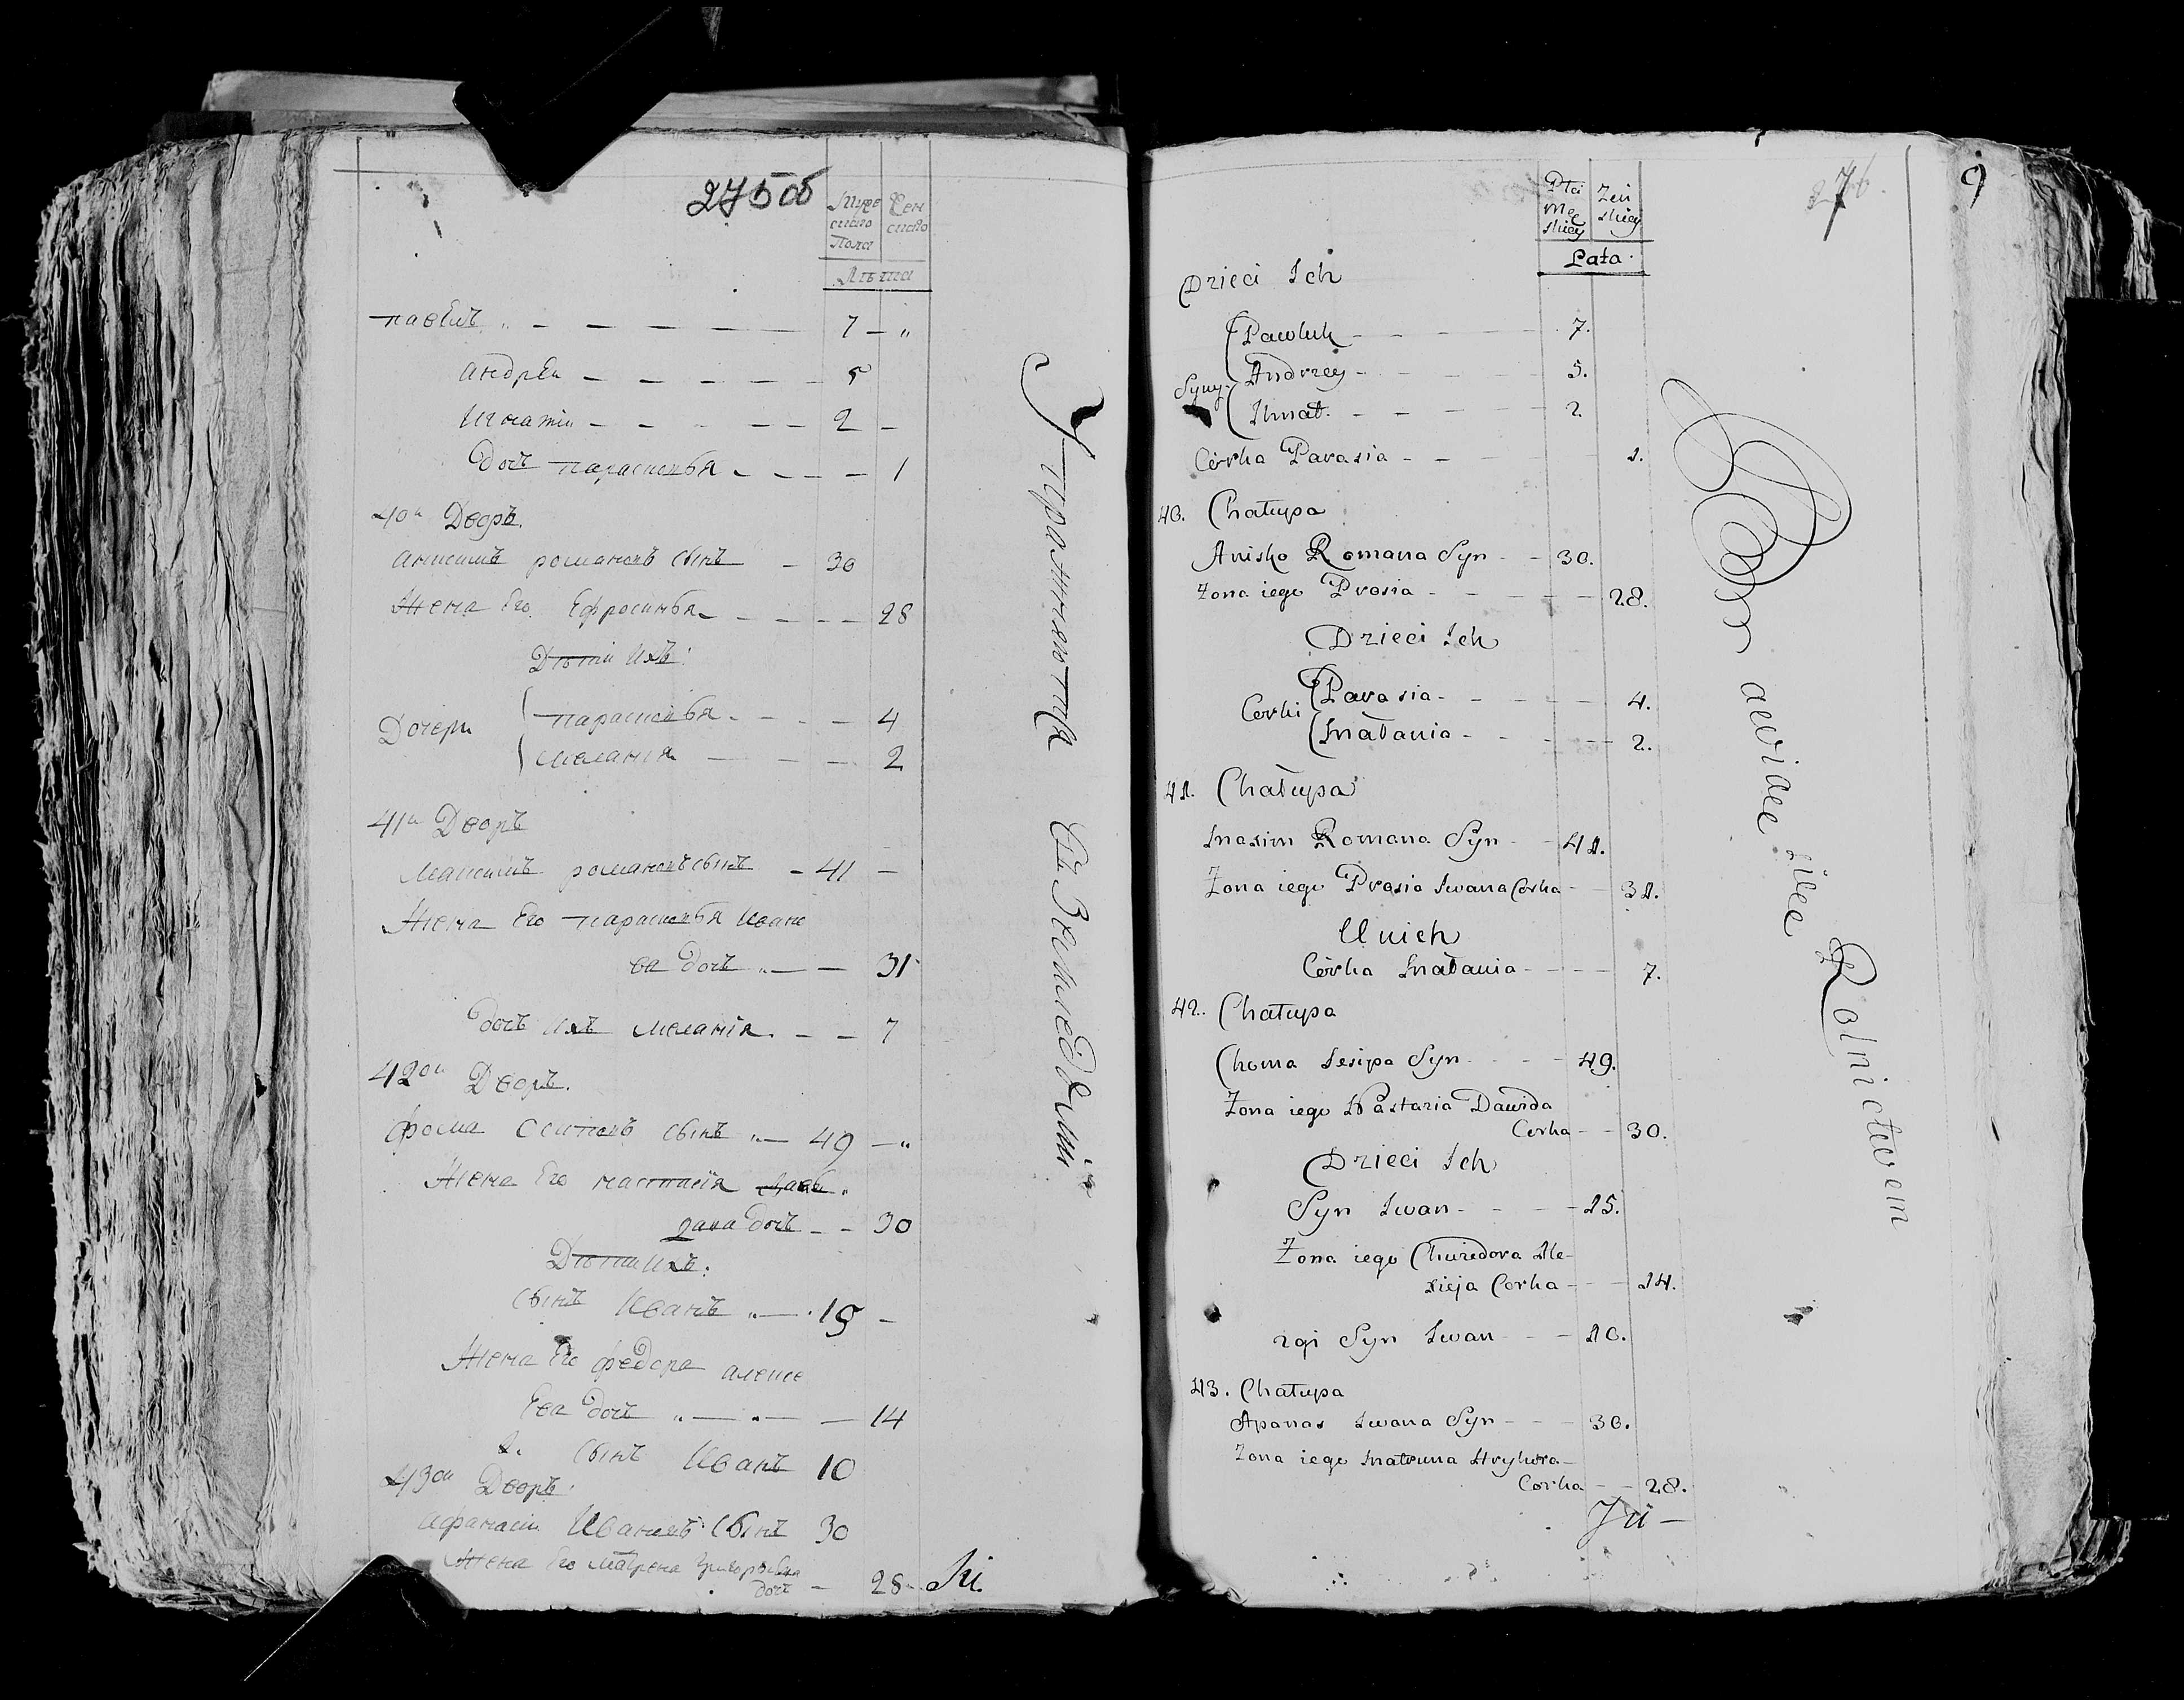 275об
Муже
скаго
Пола
Жен
скаго
Лѣта
павелъ 7
андрей 5
Игнатiй 2
дочь парасковья 1
40й Дворъ.
анисимъ романовъ сынъ 30
Жена Его Ефросинья 28
Дѣти Ихъ:
Дочери
парасковья 4
меланiя 2
41й Дворъ
максимъ романовъ сынъ 41
Жена Его парасковья Ивано
ва дочь 31
дочь Ихъ меланiя 7
42ой Дворъ.
фома Осиповъ сынъ 49
Жена Его настасiя
дочь 30
Дѣти Ихъ:
сынъ Иванъ 15
Жена Его федора алексе
Ева дочь 14
2. сынъ Иванъ 10
43ой Дворъ.
афанасiй Ивановъ сынъ 30
Жена Его Матрена Григорьева
дочь 28
Упражняются Въ Земледѣлiи
276.
9
Płci
Mę
skiey
Żeń
skiey
Lata
Dzieci Ich
Syny
Pawluk 7.
Andrzey 5.
Ihnat 2
Córka Parasia 1.
40. Chałupa
Anisko Romana Syn 30.
Żona iego Prosia 28.
Dzieci Ich
Corki
Parasia 4.
Małania 2.
41. Chałupa
Maxim Romana Syn 41.
Żona iego Prosia Iwana Corka 31.
U nich
Córka Małania 7.
42. Chałupa
Choma Iesipa Syn 49.
Żona iego Nastazia Dawida
Corka 30.
Dzieci Ich
Syn Iwan 15.
Żona iego Chwiedora Ale-
xieja Corka 14.
2gi Syn Iwan 10.
43. Chałupa
Apanas Iwana Syn 30.
Żona iego Matruna Hryhora
Corka 28.
Bawiące się Rolnictwem